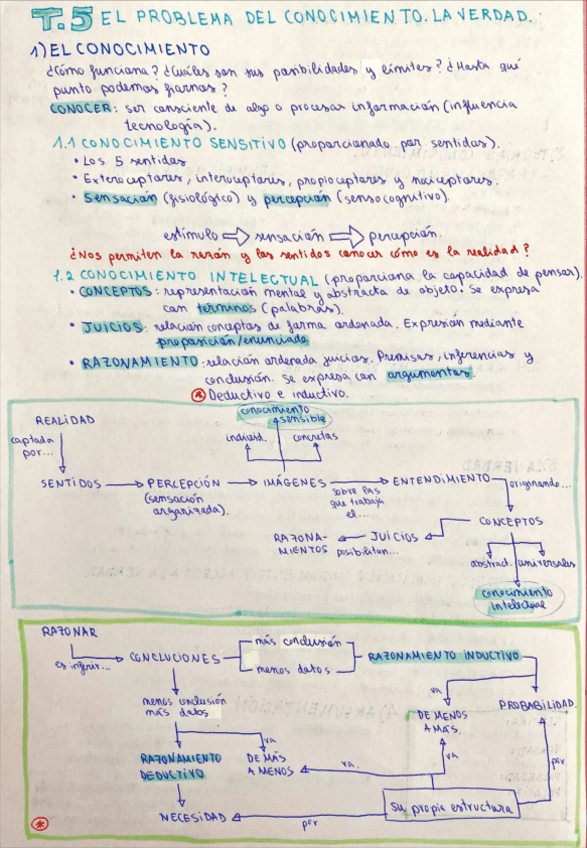 T.5 EL PROBLEMA DEL CONOCIMIENTO. LA VERDAD.
1) EL CONOCIMIENTO
¿Cómo funciona? ¿Cuáles son sus posibilidades y límites? ¿Hasta qué
punto podemos fiarnos?
CONOCER: ser consciente de algo o procesar información (influencia
tecnología).
1.1 CONOCIMIENTO SENSITIVO (proporcionado por sentidos).
• Los 5 sentidos
• Exteroceptores, interoceptores, propioceptores y nociceptores.
• Sensación (fisiológico) y percepción (senso cognitivo).
estímulo ⇒ sensación ⇒ percepción.
¿Nos permiten la razón y los sentidos conocer cómo es la realidad?
1.2 CONOCIMIENTO INTELECTUAL (proporciona la capacidad de pensar).
• CONCEPTOS: representación mental y abstracta de objeto. Se expresa
con términos (palabras).
• JUICIOS: relación conceptos de forma ordenada. Expresión mediante
proposición/enunciado
• RAZONAMIENTO: relación ordenada juicios. Premisas, inferencias y
conclusión. Se expresa con argumentos.
* Deductivo e inductivo.
REALIDAD
captada
por...
conocimiento
sensible
individ. concretas
SENTIDOS → PERCEPCIÓN → IMÁGENES → ENTENDIMIENTO
(sensación
organizada).
sobre las
que trabaja
el...
originando...
CONCEPTOS
RAZONA-
MIENTOS
← JUICIOS
posibilitan...
abstrad. universales
conocimiento
intelectual
RAZONAR
es inferir...
CONCLUCIONES
más conclusión
menos datos
RAZONAMIENTO INDUCTIVO
menos conclusión
más datos
va
DE MENOS
A MÁS.
PROBABILIDAD.
RAZONAMIENTO
DEDUCTIVO
va
DE MÁS
A MENOS
va
va
por
Su propia estructura
NECESIDAD
por
*
4) ARGUMENTACIÓN